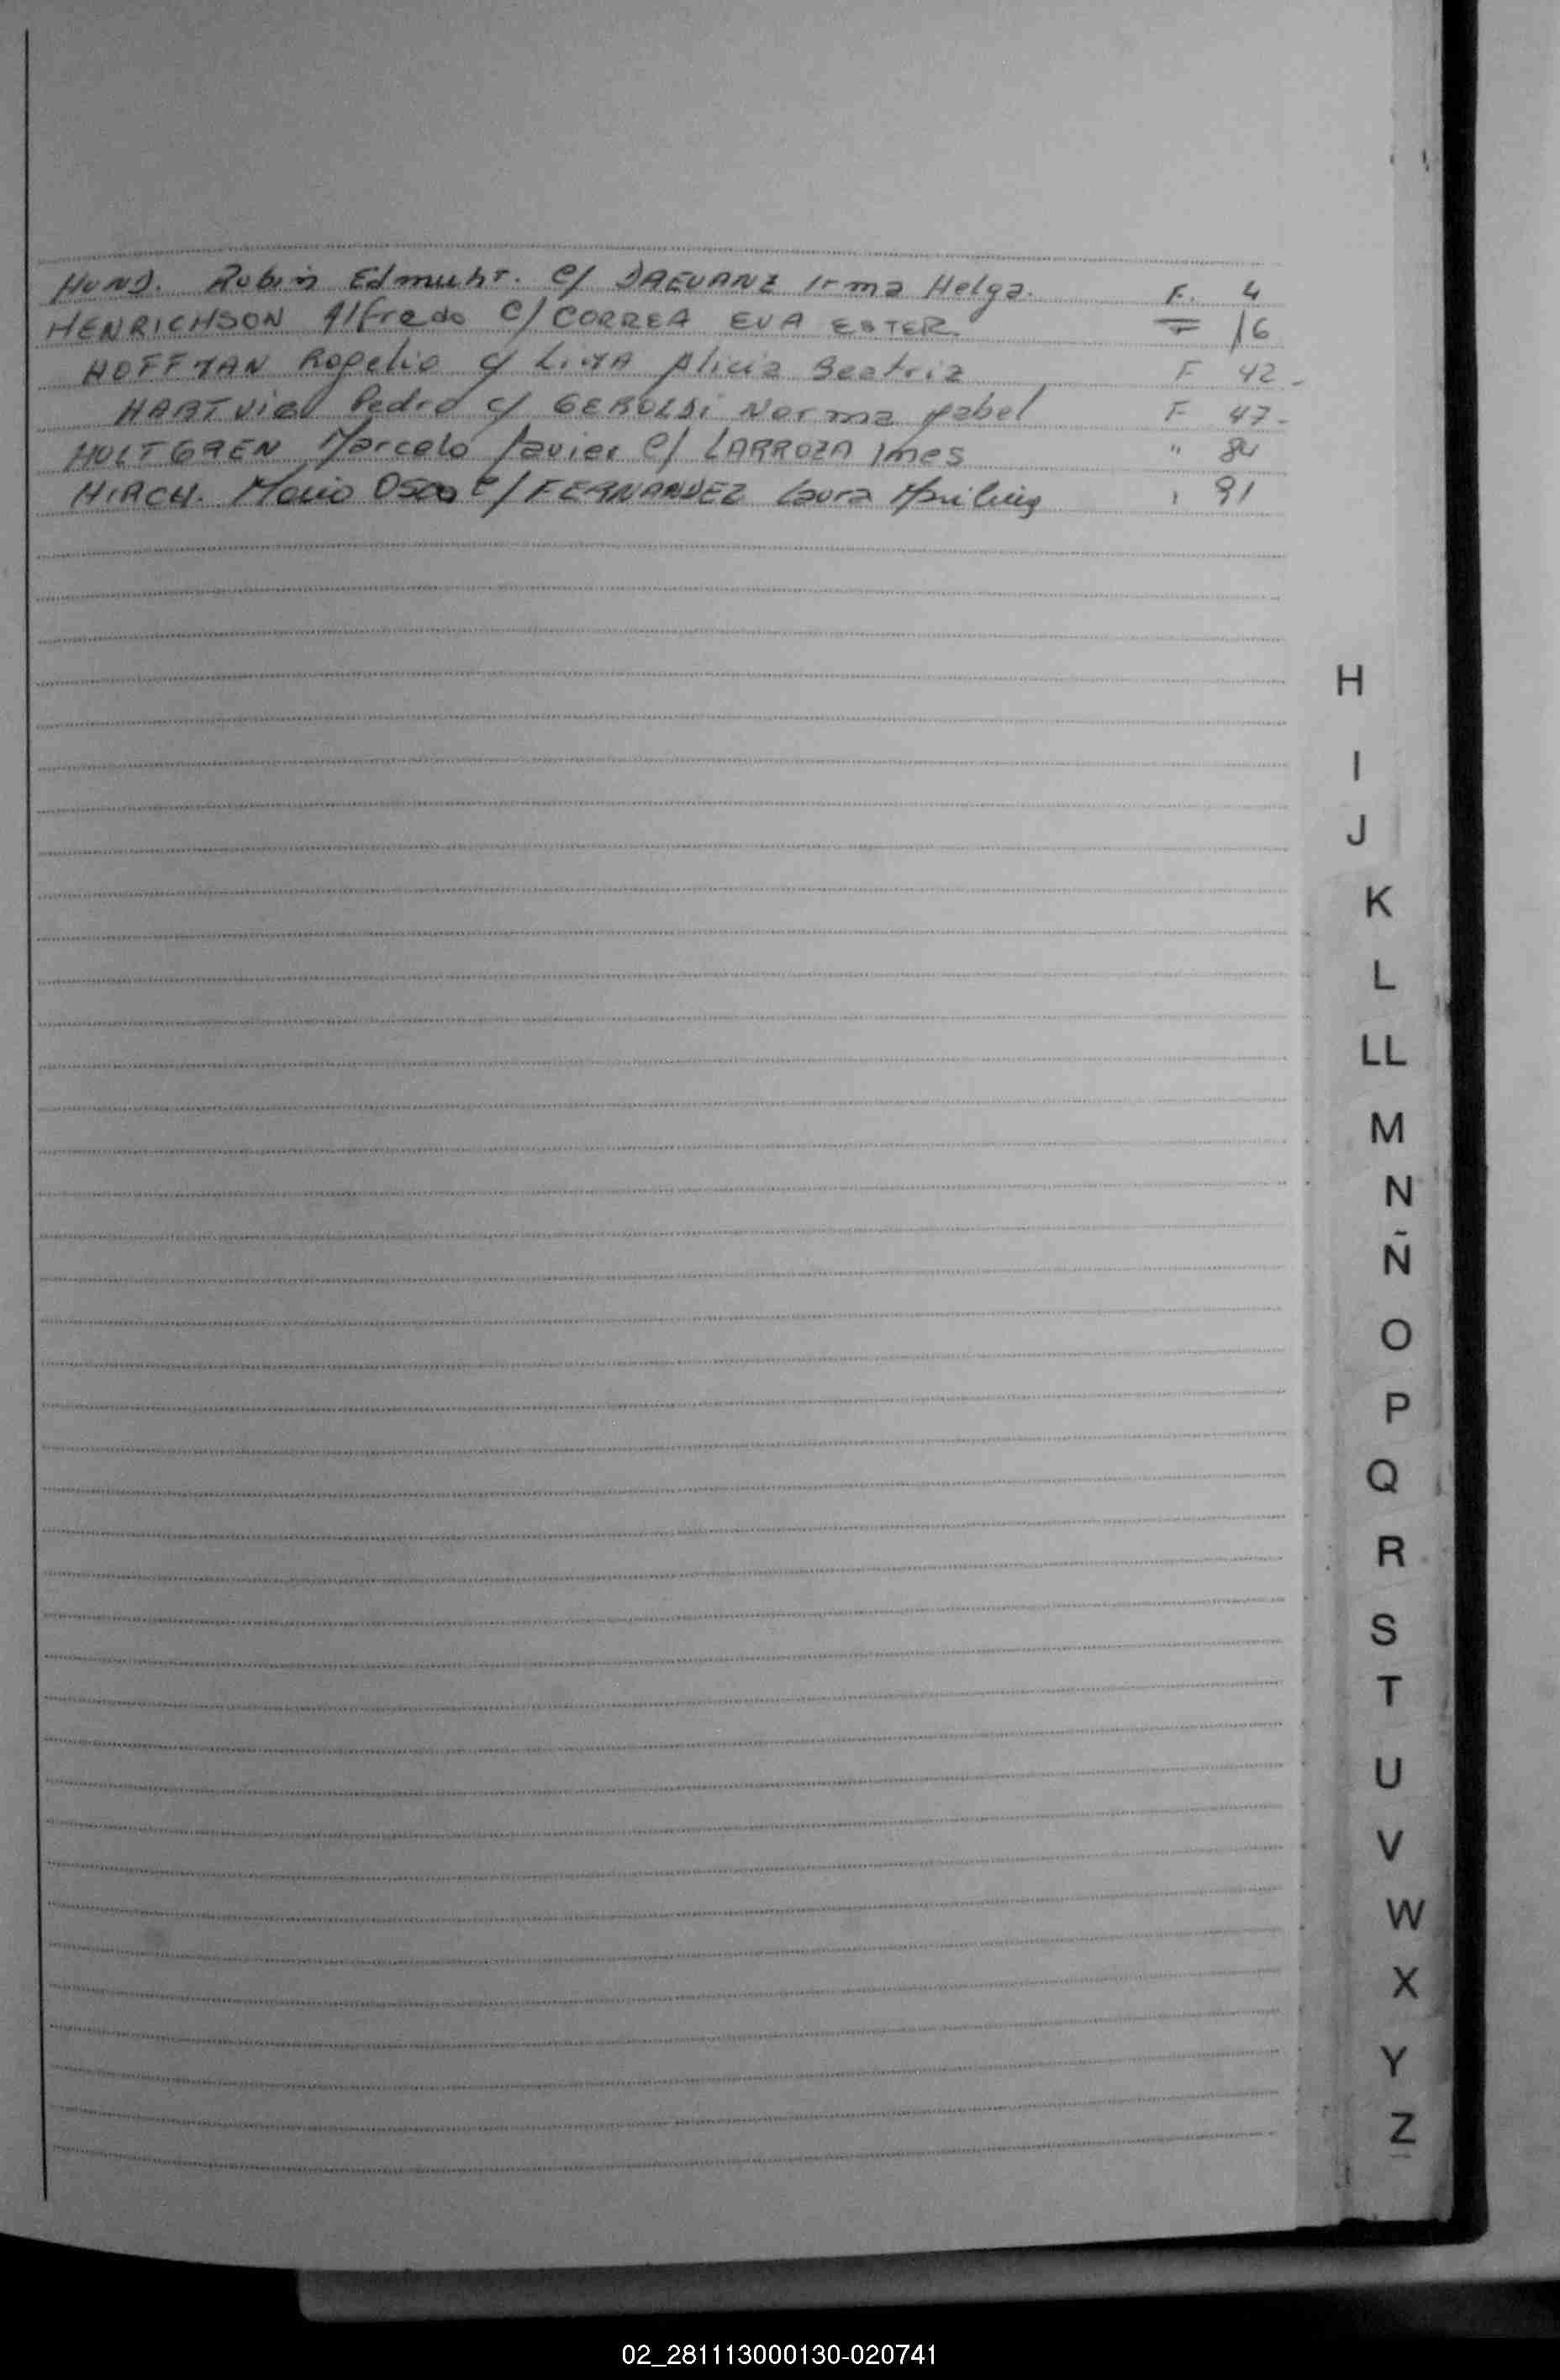 HUND. Rubin Edmunht. C/ DREVANZ Irma Helga. F. 4
HENRICHSON Alfredo C/ CORREA EVA ESTER. F 16
HOFFMAN Rogelio c/ LiMA Alicia Beatriz F 42-
HARTViG Pedro c/ GEROLDi Norma Ysabel F 47-
HULTGREN Marcelo Javier C/ LARROZA Ines " 84
HIRCH. Mario Oscar C/ FERNANDEZ Laura " 91
H
I
J
K
L
LL
M
N
Ñ
O
P
Q
R
S
T
U
V
W
X
Y
Z
02_281113000130-020741